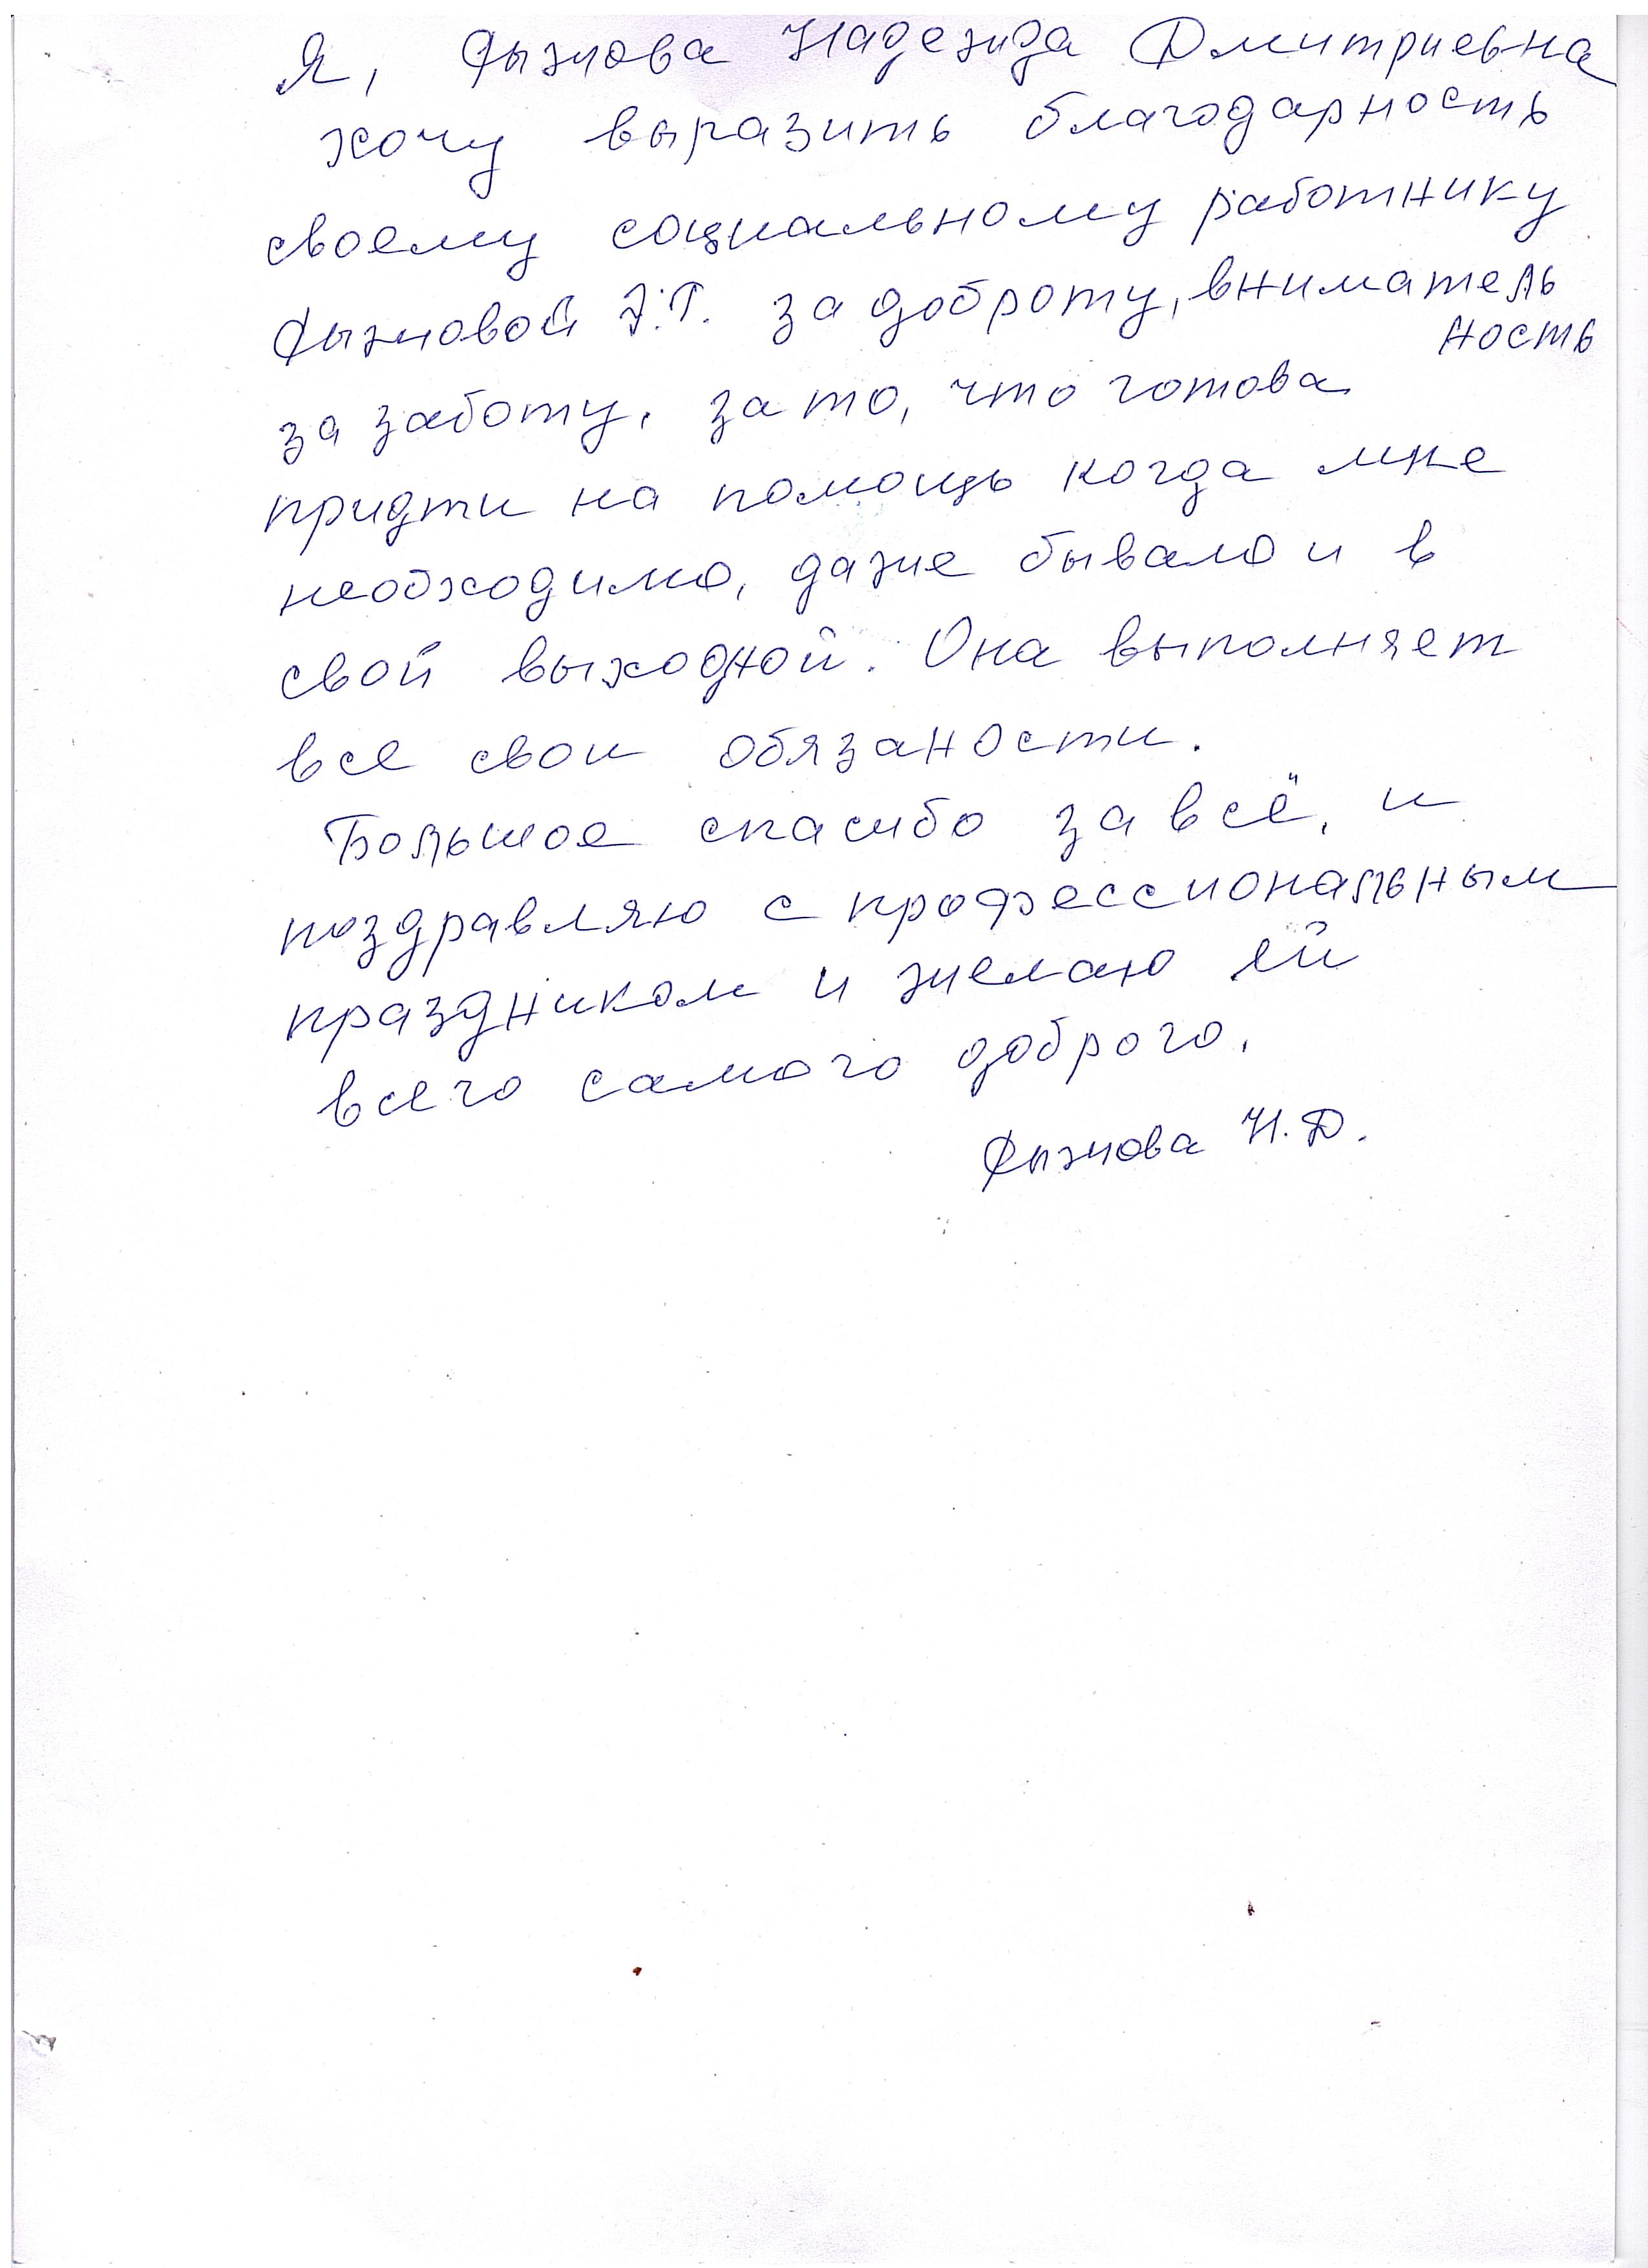 Я, Рыжова Надежда Дмитриевна
хочу выразить благодарность
своему социальному работнику
Рыжовой за доброту, вниматель
ность
за заботу, за то, что готова
придти на помощь когда мне
необходимо, даже бывало и в
свой выходной. Она выполняет
все свои обязаности.
Большое спасибо за всё, и
поздравляю с профессиональным
праздником и желаю ей
всего самого доброго.
Рыжова Н.Д.